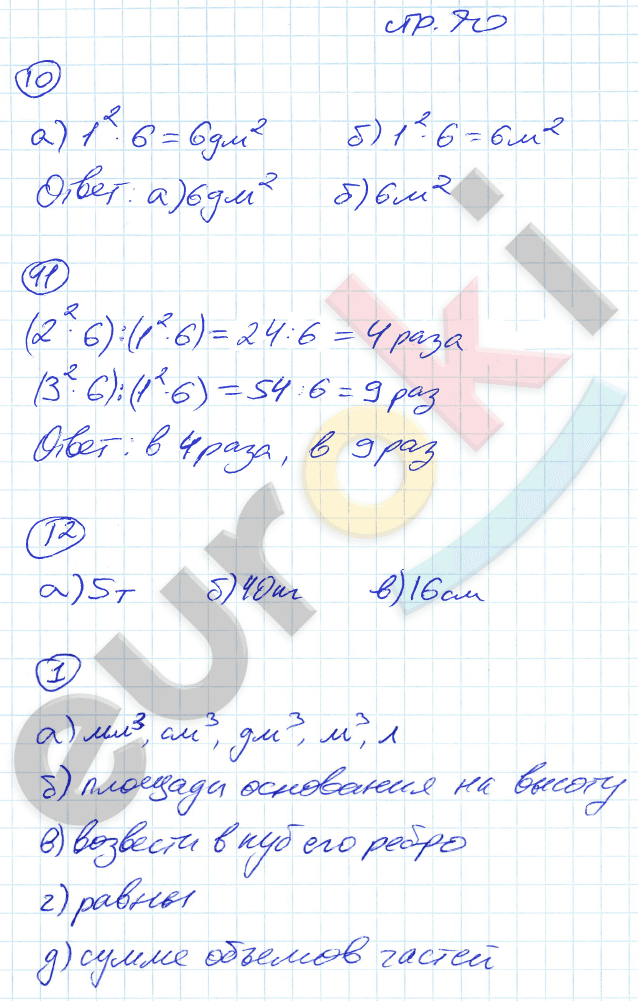 стр. 70
10
а) 1²·6 = 6дм² б) 1²·6 = 6м²
Ответ: а) 6дм² б) 6м²
11
(2²·6):(1²·6) = 24:6 = 4 раза
(3²·6):(1²·6) = 54:6 = 9 раз
Ответ: в 4 раза, в 9 раз
12
а) 5т б) 40кг в) 16см
1
а) мм³, см³, дм³, м³, л
б) площади основания на высоту
в) возвести в куб его ребро
г) равны
д) сумме объемов частей
euroki